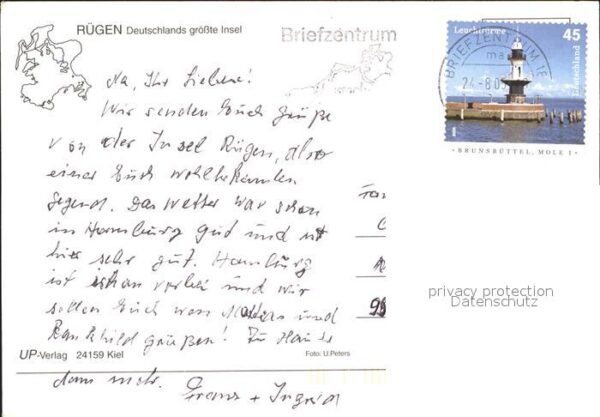 RÜGEN Deutschlands größte Insel
Briefzentrum
Leuchttürme 45
Deutschland
BRIEFZENTRUM
24-8.0
BRUNSBÜTTEL, MOLE 1
Na, Ihr Lieben!
Wir senden Euch Grüße
von der Insel Rügen, also
einer Euch wohlbekannten
Gegend. Das Wetter war schon
in Hamburg gut und ist
hier sehr gut. Hamburg
ist schon vorbei und wir
sollen Euch von und
grüßen! Zu Hause
dann mehr. Franz + Ingrid
Fam
98
privacy protection
Datenschutz
UP-Verlag 24159 Kiel
Foto: U.Peters